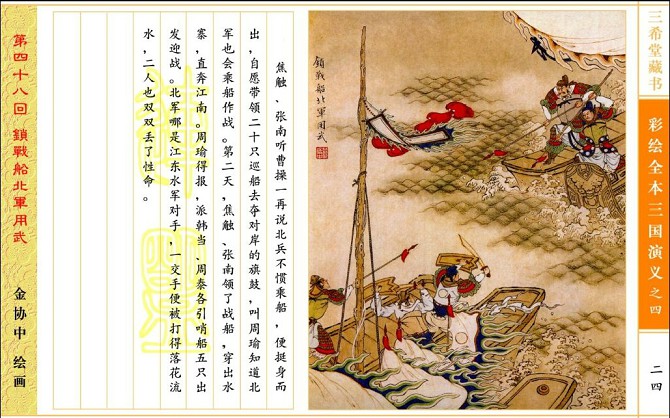 三希堂藏书
彩绘全本三国演义之四
二四
鎖戰船北軍用武
焦触、张南听曹操一再说北兵不惯乘船，便挺身而
出，自愿带领二十只巡船去夺对岸的旗鼓，叫周瑜知道北
军也会乘船作战。第二天，焦触、张南领了战船，穿出水
寨，直奔江南。周瑜得报，派韩当、周泰各引哨船五只出
发迎战。北军哪是江东水军对手，一交手便被打得落花流
水，二人也双双丢了性命。
第四十八回 鎖戰船北軍用武
金协中 绘画